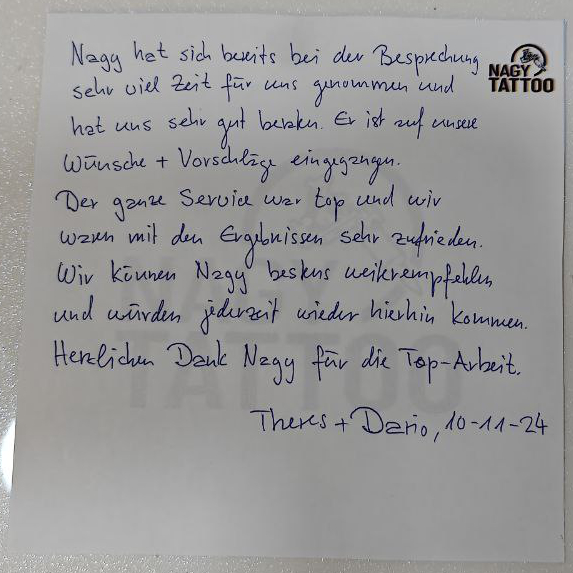 Nagy hat sich bereits bei der Besprechung
sehr viel Zeit für uns genommen und
hat uns sehr gut beraten. Er ist auf unsere
Wünsche + Vorschläge eingegangen.
Der ganze Service war top und wir
waren mit den Ergebnissen sehr zufrieden.
Wir können Nagy bestens weiterempfehlen
und würden jederzeit wieder hierhin kommen.
Herzlichen Dank Nagy für die Top-Arbeit.
Theres + Dario, 10-11-24
NAGY
TATTOO
NAGY
TATTOO